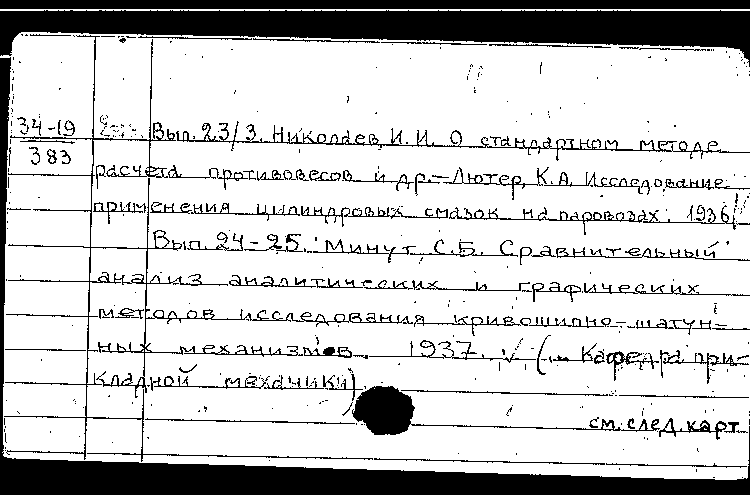 34-19
383
Вып. 23/3. Николаев, И.И. О стандартном методе
расчета противовесов и др. – Лютер, К.А. Исследование
применения цилиндровых смазок на паровозах. 1936
Вып. 24-25. Минут, С.Б. Сравнительный
анализ аналитических и графических
методов исследования кривошипно-шатун=
ных механизмов. 1937. √ (... Кафедра при-
кладной механики)
см. след. карт